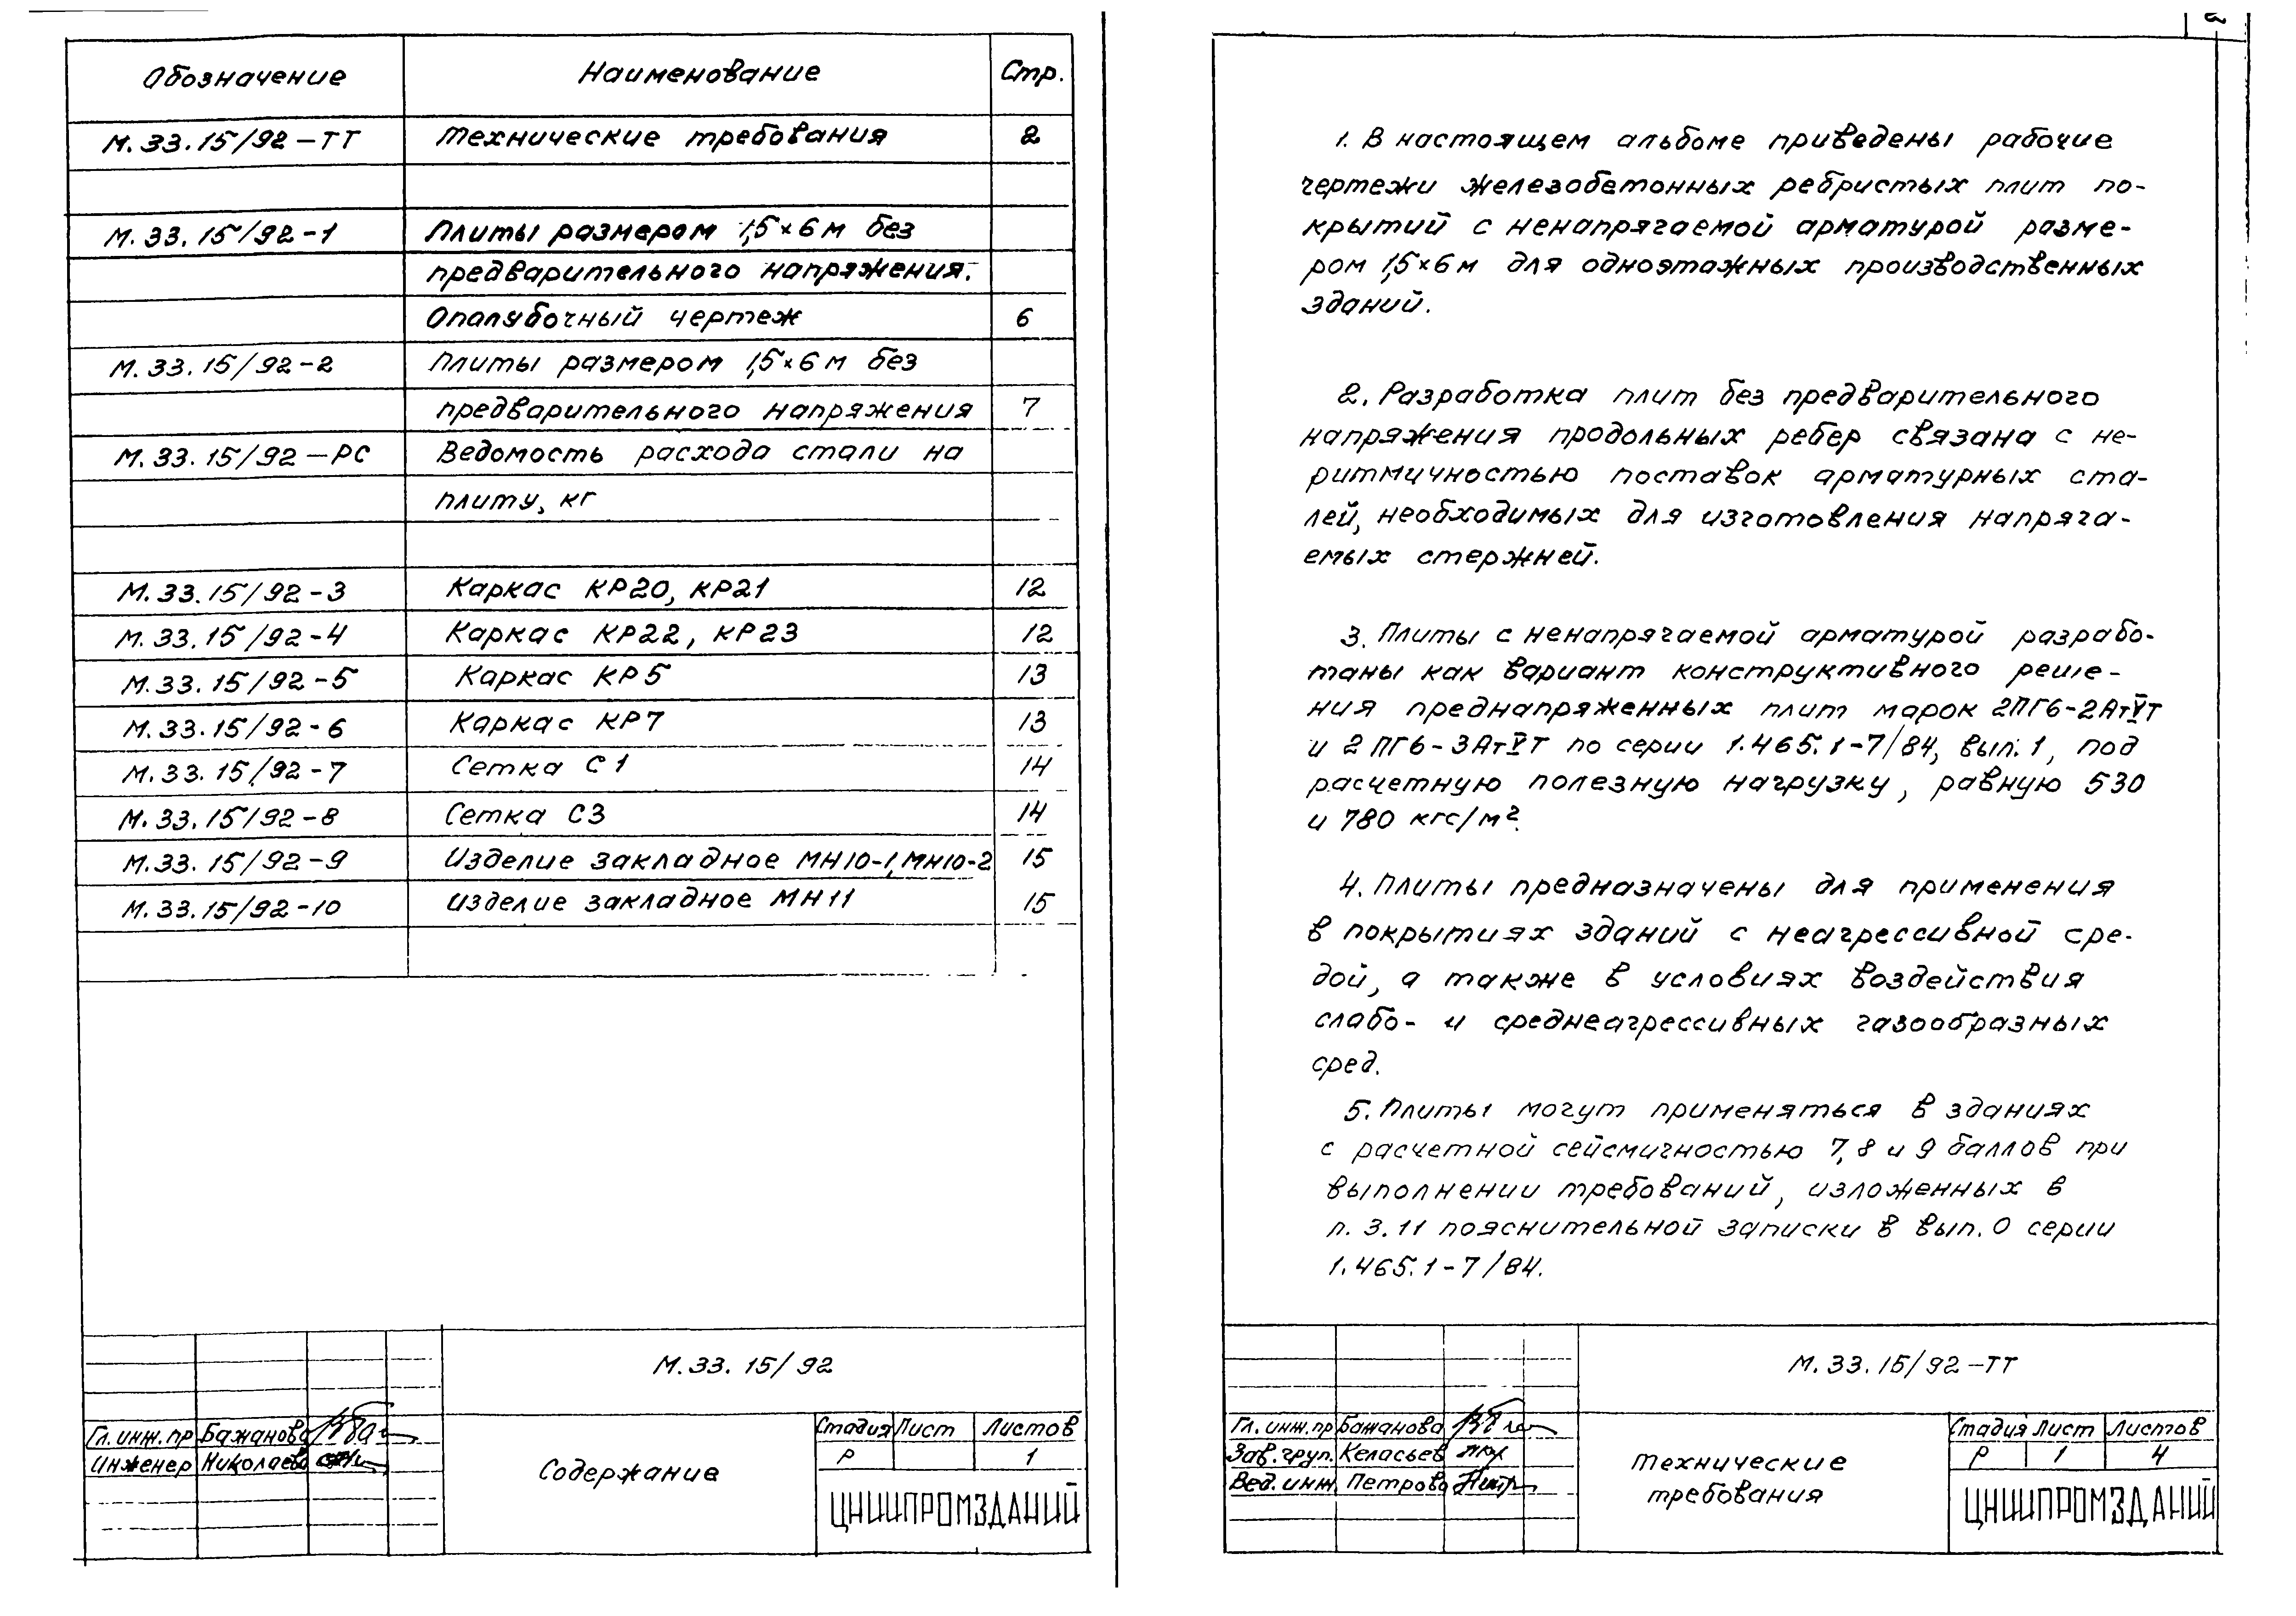 Обозначение Наименование Стр.
М.33.15/92-ТТ Технические требования 2
М.33.15/92-1 Плиты размером 1,5×6м без
предварительного напряжения.
Опалубочный чертеж 6
М.33.15/92-2 Плиты размером 1,5×6м без
предварительного напряжения 7
М.33.15/92-РС Ведомость расхода стали на
плиту, кг
М.33.15/92-3 Каркас КР20, КР21 12
М.33.15/92-4 Каркас КР22, КР23 12
М.33.15/92-5 Каркас КР5 13
М.33.15/92-6 Каркас КР7 13
М.33.15/92-7 Сетка С1 14
М.33.15/92-8 Сетка С3 14
М.33.15/92-9 Изделие закладное МН10-1, МН10-2 15
М.33.15/92-10 Изделие закладное МН11 15
М.33.15/92
Гл.инж.пр Бажанова
Инженер Николаева
Содержание
Стадия Лист Листов
Р 1
ЦНИИПРОМЗДАНИЙ
2
1. В настоящем альбоме приведены рабочие
чертежи железобетонных ребристых плит по-
крытий с ненапрягаемой арматурой разме-
ром 1,5×6м для одноэтажных производственных
зданий.
2. Разработка плит без предварительного
напряжения продольных ребер связана с не-
ритмичностью поставок арматурных ста-
лей, необходимых для изготовления напряга-
емых стержней.
3. Плиты с ненапрягаемой арматурой разрабо-
таны как вариант конструктивного реше-
ния преднапряженных плит марок 2ПГ6-2АтVТ
и 2ПГ6-3АтVТ по серии 1.465.1-7/84, вып. 1, под
расчетную полезную нагрузку, равную 530
и 780 кгс/м².
4. Плиты предназначены для применения
в покрытиях зданий с неагрессивной сре-
дой, а также в условиях воздействия
слабо- и среднеагрессивных газообразных
сред.
5. Плиты могут применяться в зданиях
с расчетной сейсмичностью 7, 8 и 9 баллов при
выполнении требований, изложенных в
п. 3.11 пояснительной записки в вып. 0 серии
1.465.1-7/84.
М.33.15/92-ТТ
Гл.инж.пр Бажанова
Зав.груп. Келасьев
Вед.инж. Петрова
Технические
требования
Стадия Лист Листов
Р 1 4
ЦНИИПРОМЗДАНИЙ